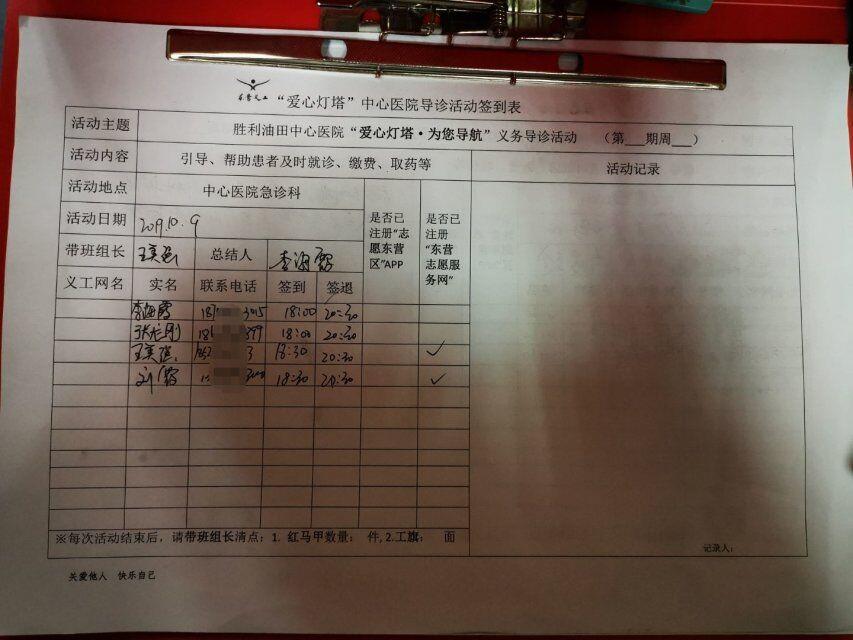 “爱心灯塔”中心医院导诊活动签到表
活动主题 胜利油田中心医院“爱心灯塔·为您导航”义务导诊活动 （第___期周___）
活动内容 引导、帮助患者及时就诊、缴费、取药等 活动记录
活动地点 中心医院急诊科 是否已注册“志愿东营区”APP 是否已注册“东营志愿服务网”
活动日期 2019.10.9
带班组长 总结人 李海霞
义工网名 实名 联系电话 签到 签退
李海霞 18:00 20:30
18:00 20:30
18:30 20:30 ✓
刘霞 18:30 20:30 ✓
※每次活动结束后，请带班组长清点：1. 红马甲数量： 件, 2.工旗： 面
记录人：
关爱他人 快乐自己